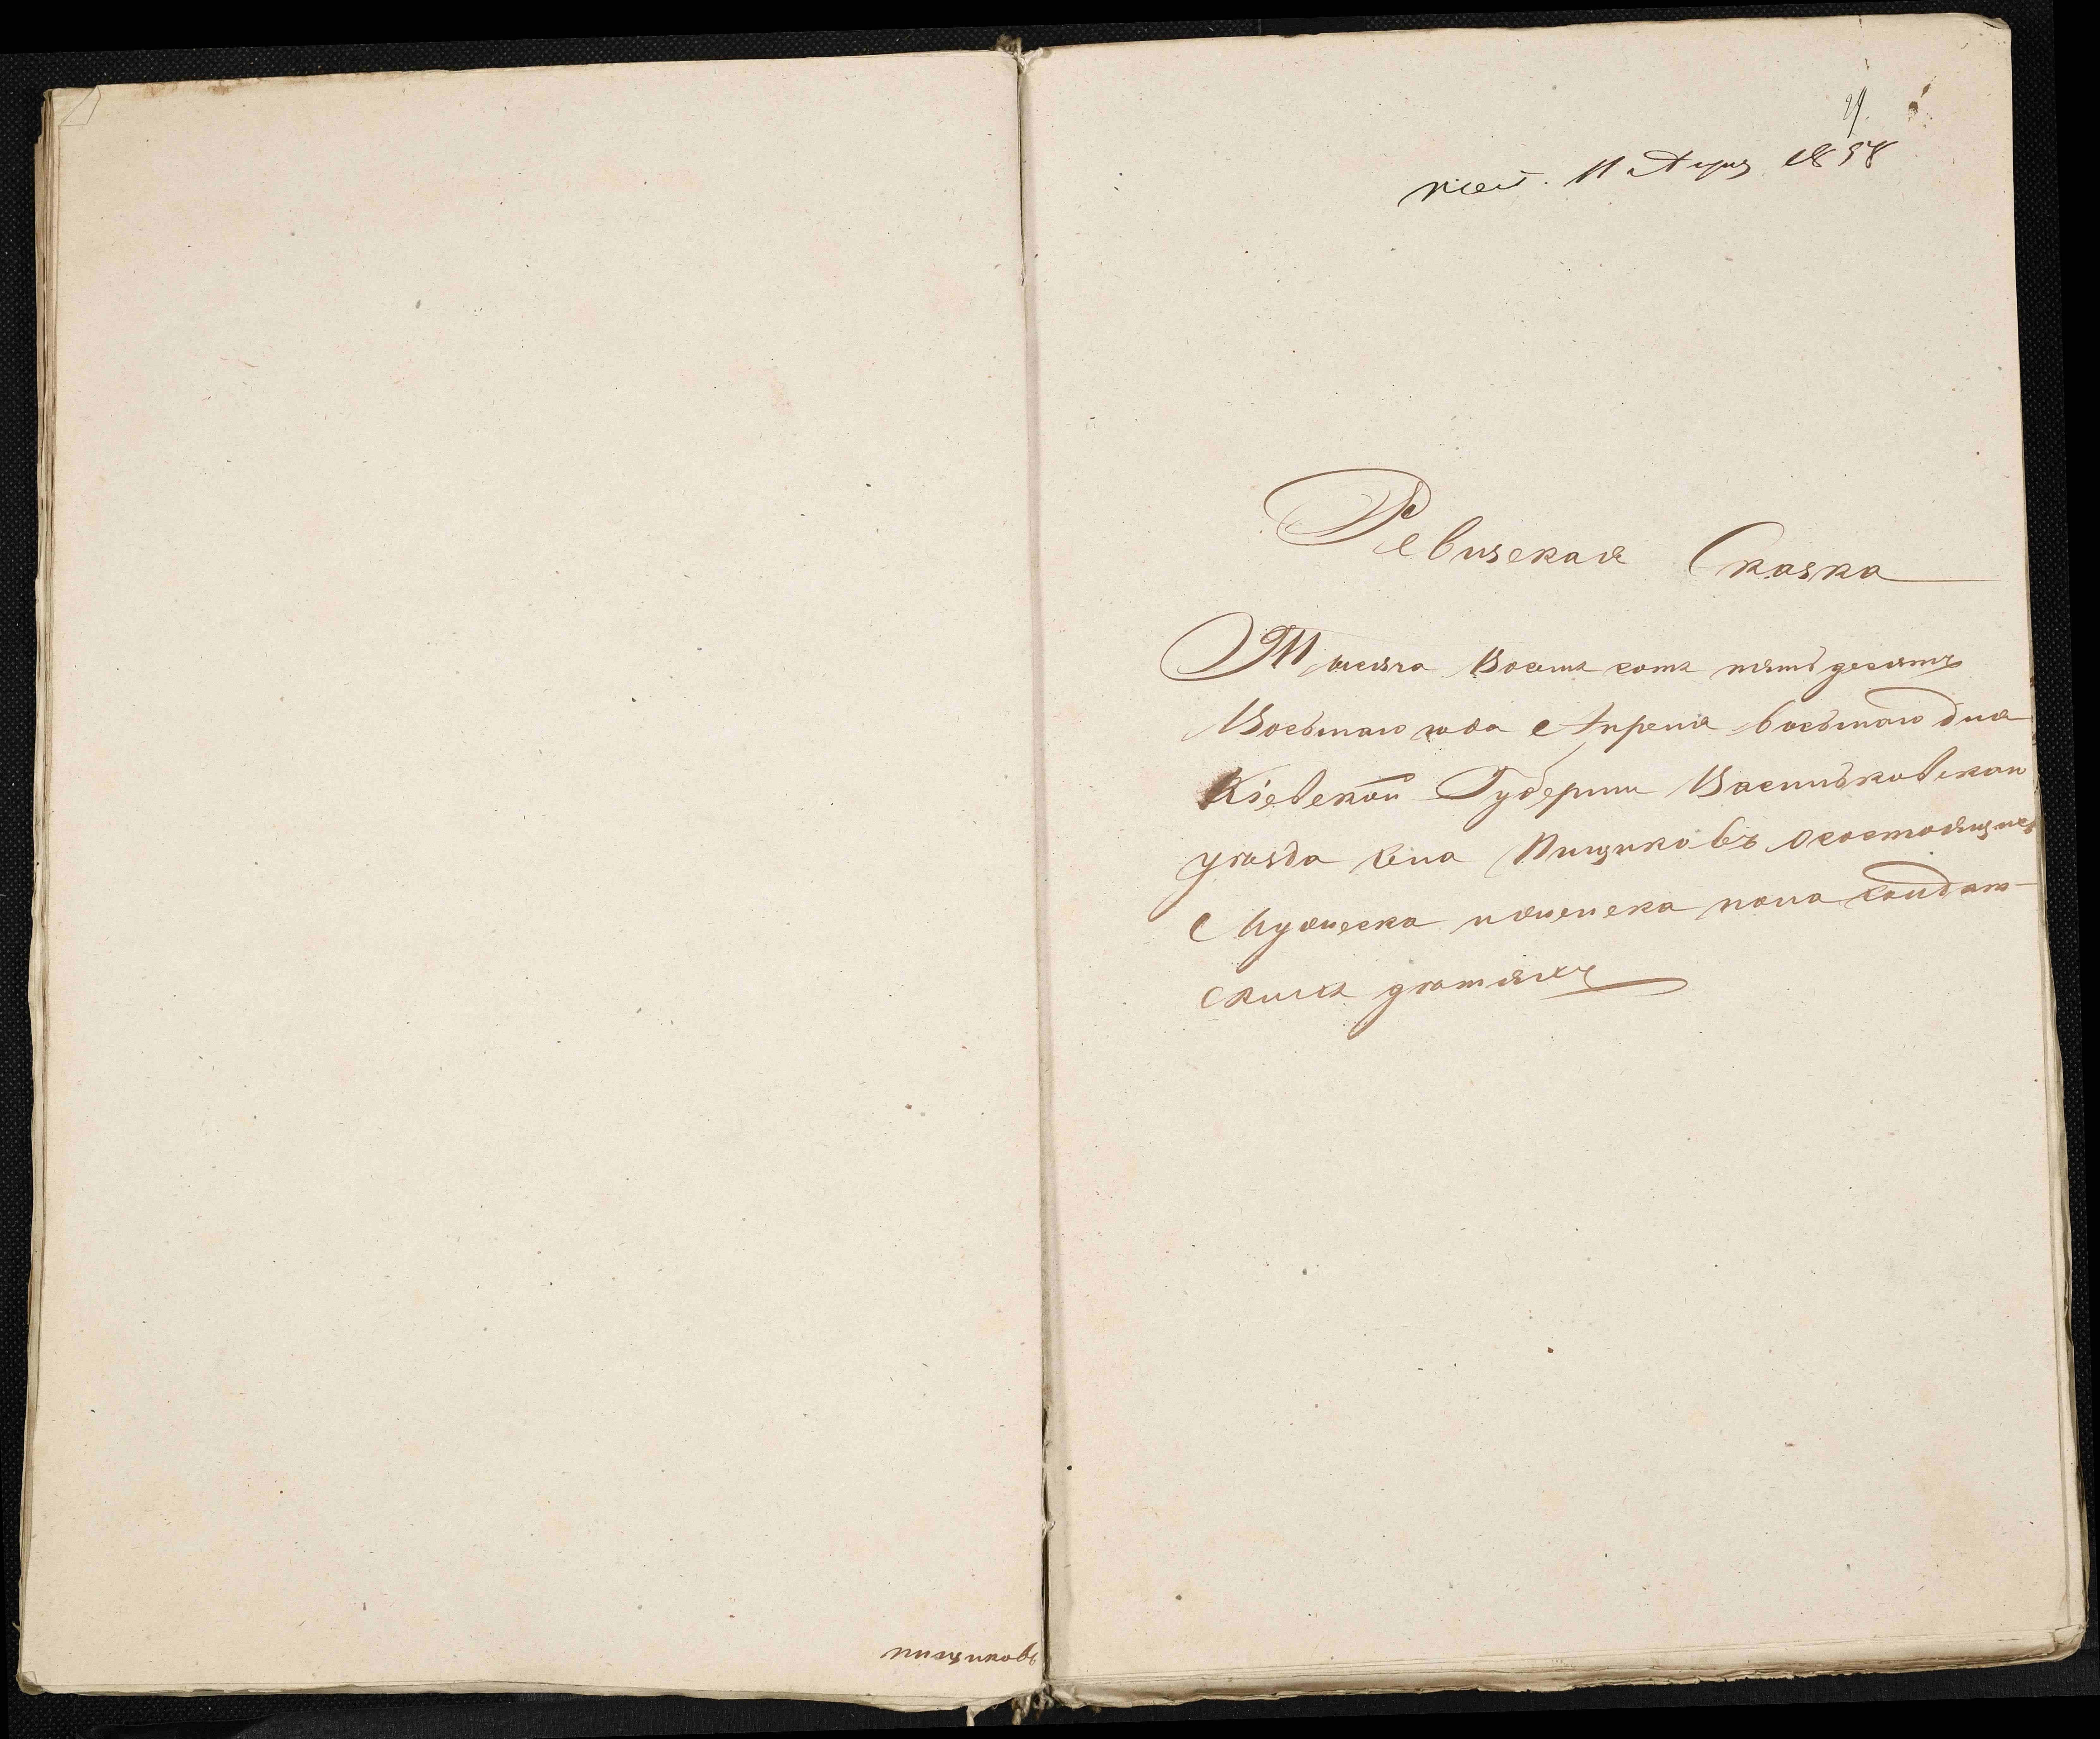 11 Апря 1858
Ревизская Сказка
Тысяча Восемъ сотъ пятьдесятъ
Восьмаго года Апреля восьмаго дня
Кіевской Губерніи Васильковскаго
уезда села Пищиковъ осостоящихъ
Мужеска иженска пола солдат-
скихъ детяхъ
пищиковъ